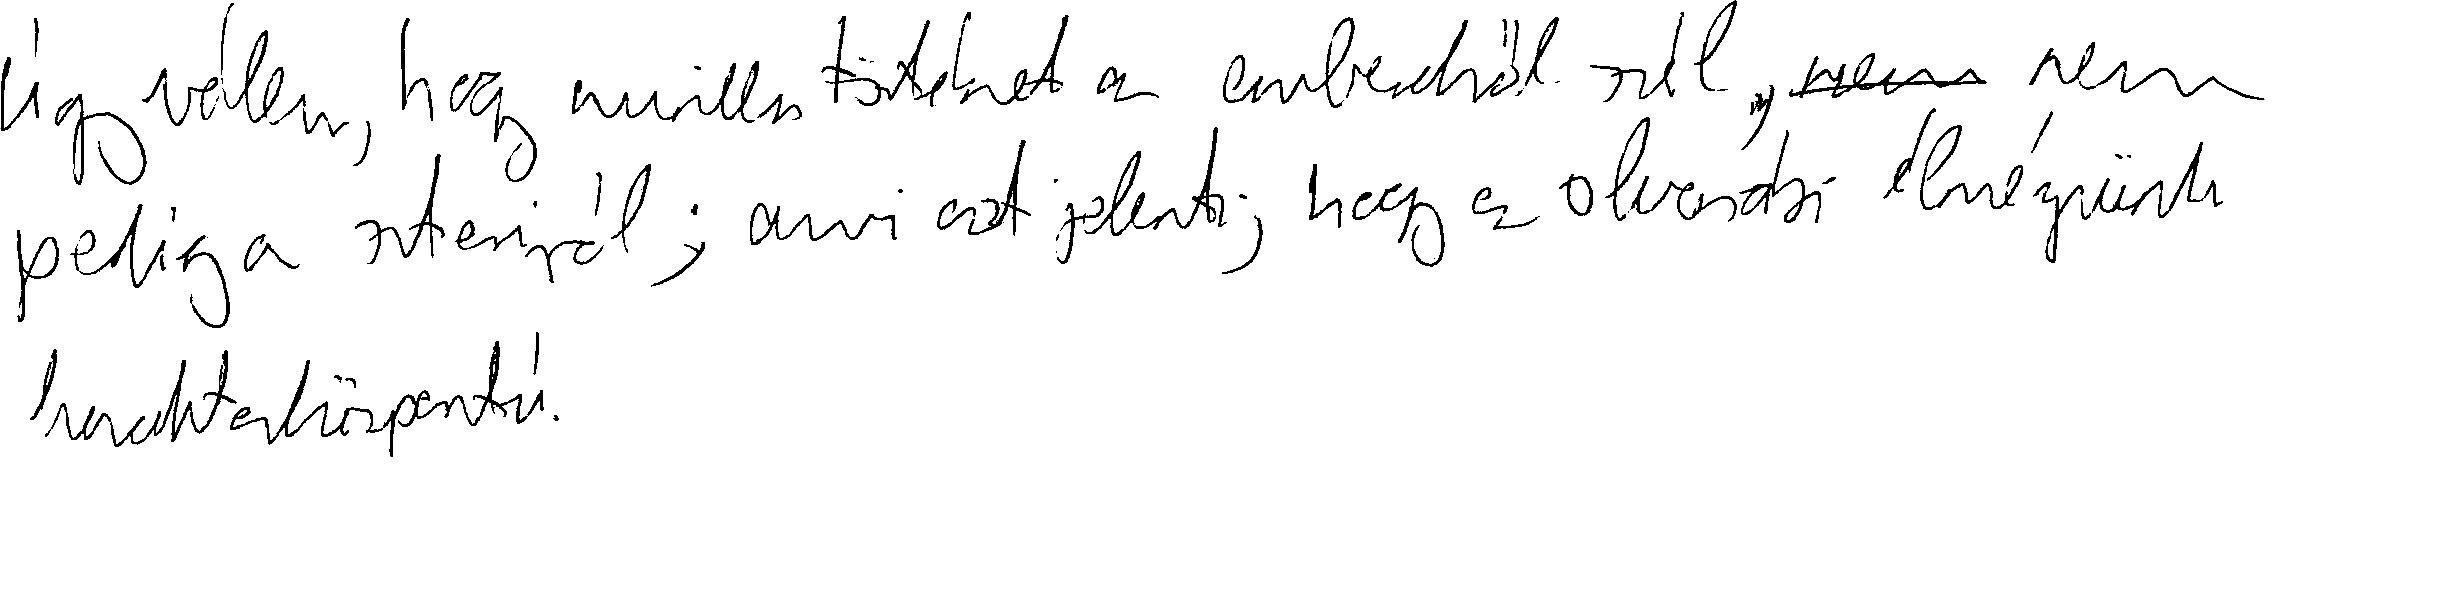 Úgy vélem, hogy minden történet az emberekről szól, nem nem
pedig a sztorijról; ami azt jelenti, hogy az olvasási élményünk
karakterközpontú.